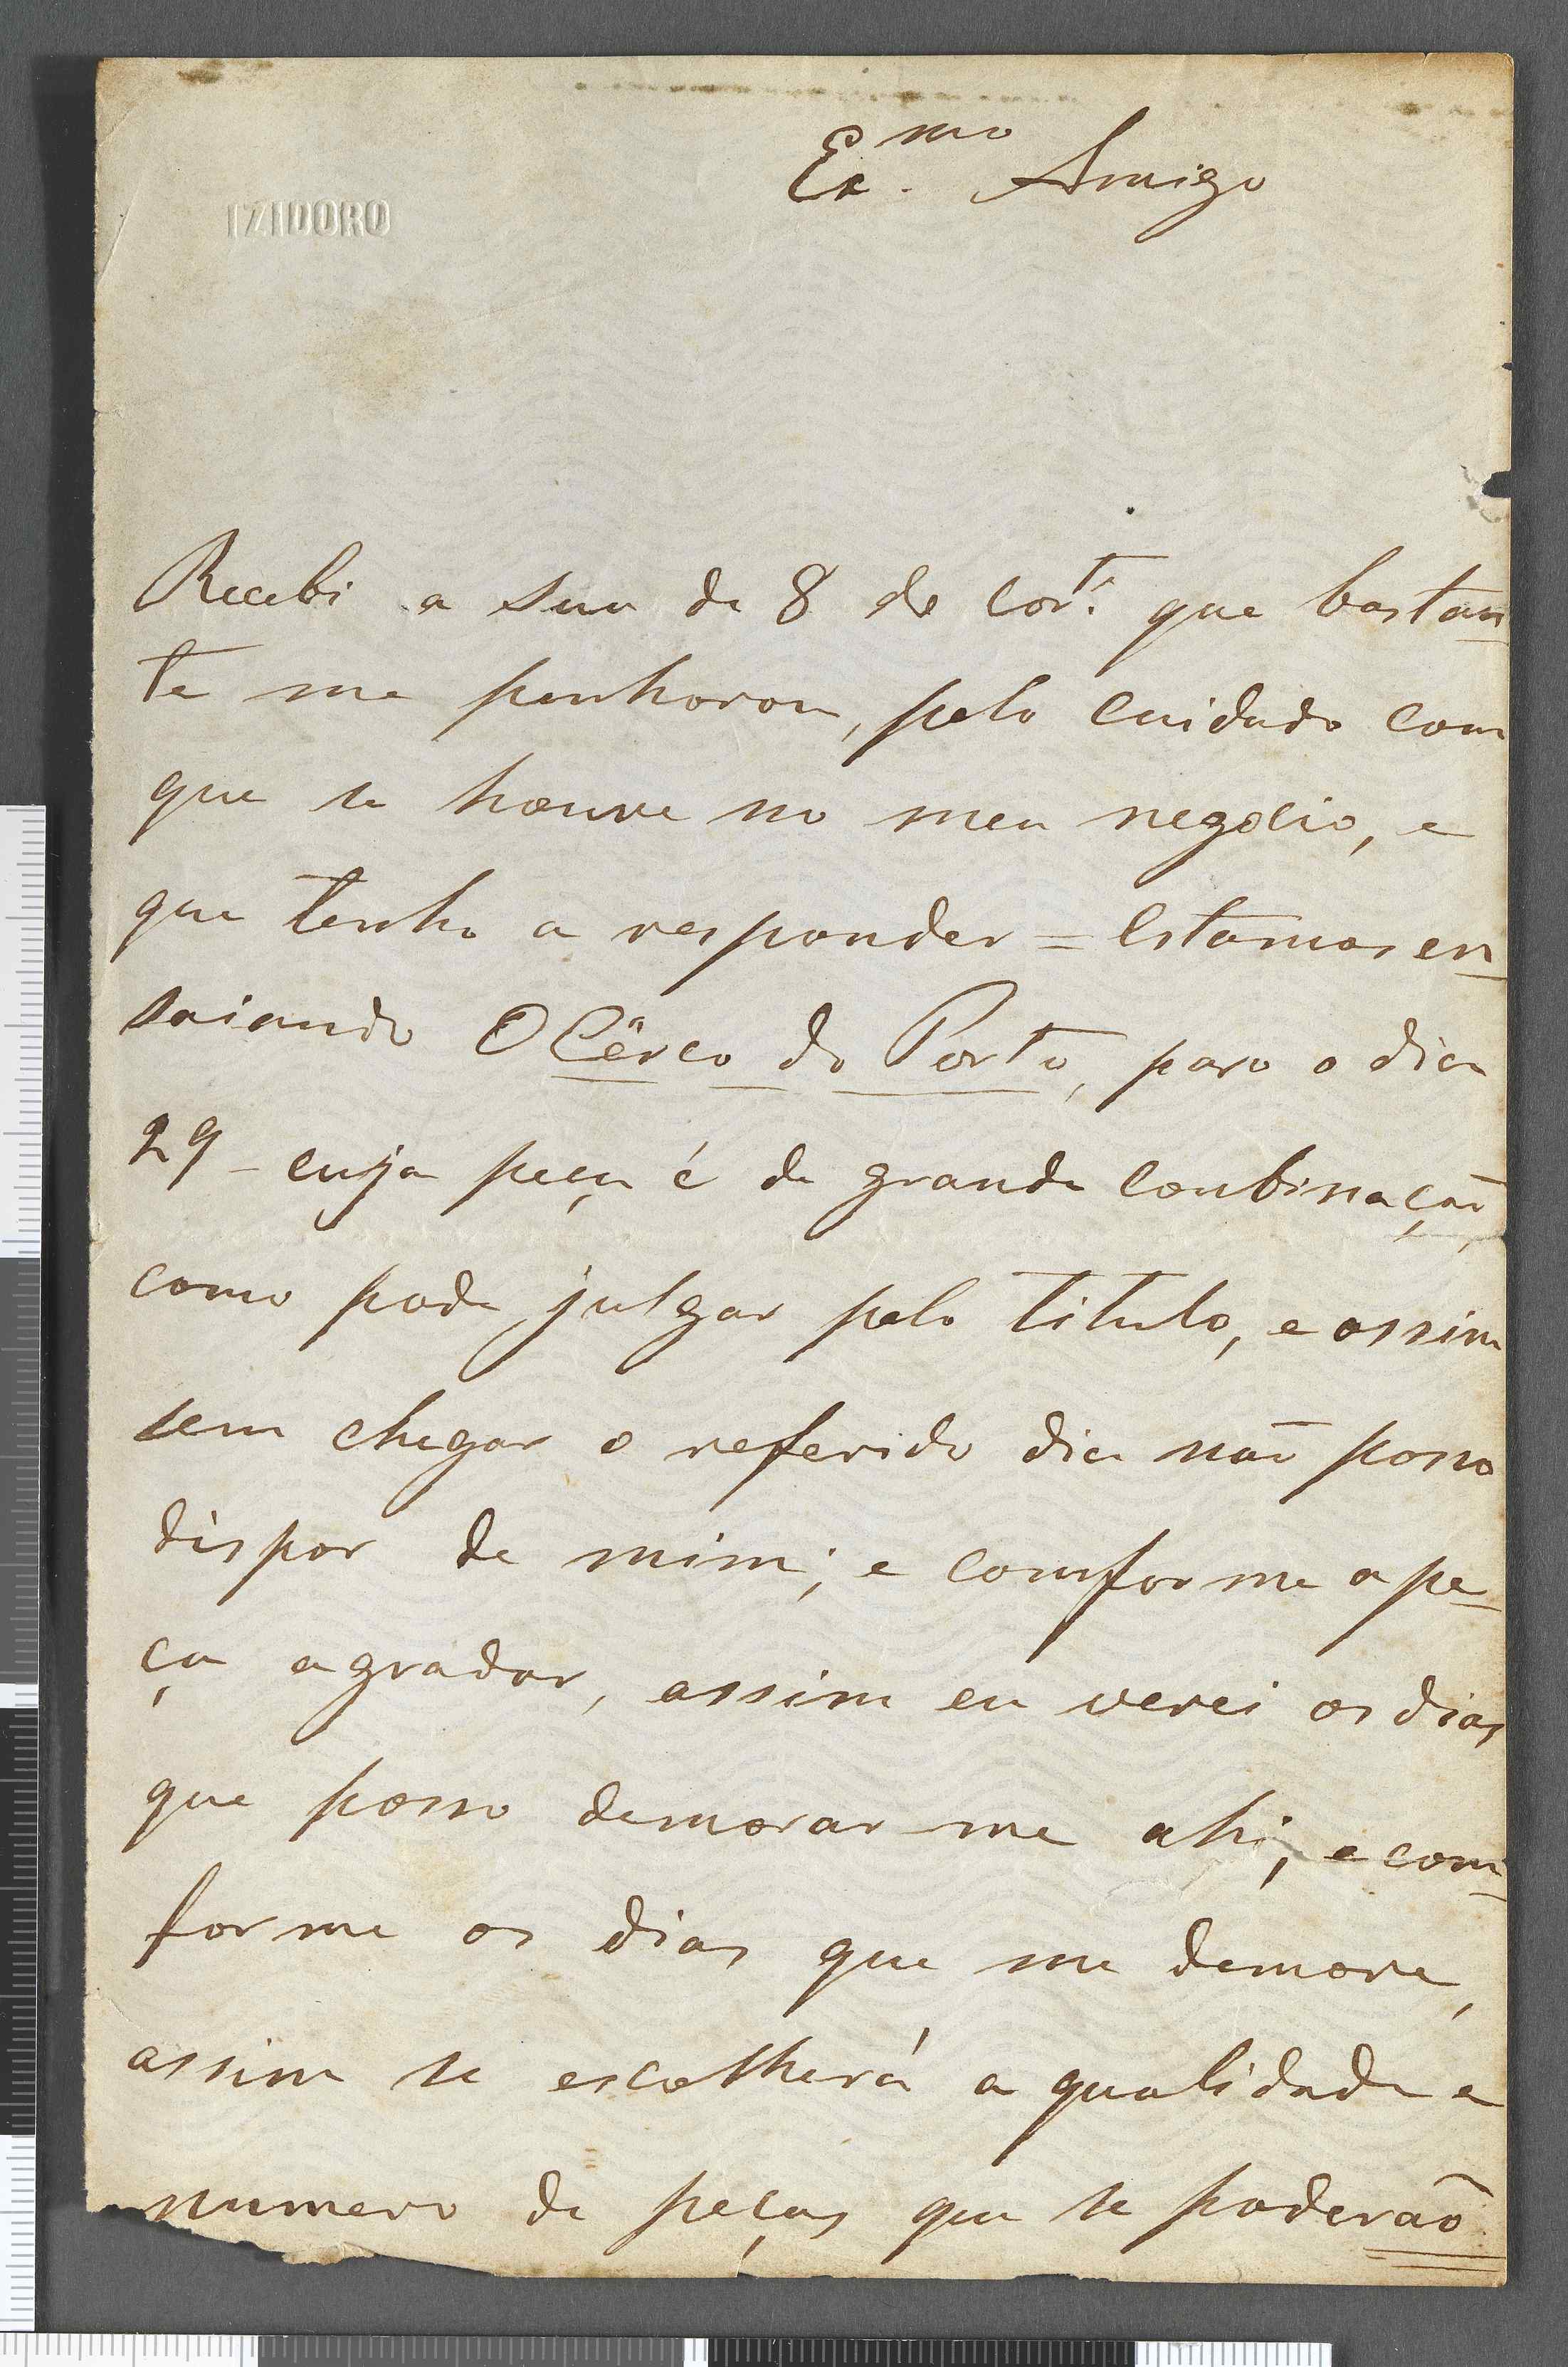 Ex.mo Amigo
IZIDORO
Recebi a sua de 8 do cort.e que bastan-
te me penhorou, pelo cuidado com
que se houve no meu negocio, e
que tenho a responder = Estamos en-
saiando O Cêrco do Porto, para o dia
29 - cuja peça é de grande conbinação,
como pode julgar pelo titulo, e assim
sem chegar o referido dia não posso
dispor de mim; e comforme a pe-
ça agradar, assim eu verei os dias
que posso demorar-me ahi, e com-
forme os dias que me demore,
assim se escolherá a qualidade e
numero de peças que se poderão